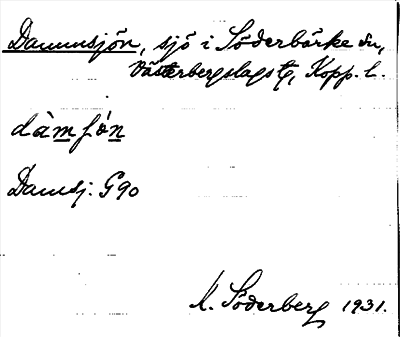 Dammsjön, sjö i Söderbärke sn,
Västerbergslags tg, Kopp. l.
dàmʃón
Damsj: G 90
M. Söderberg 1931.